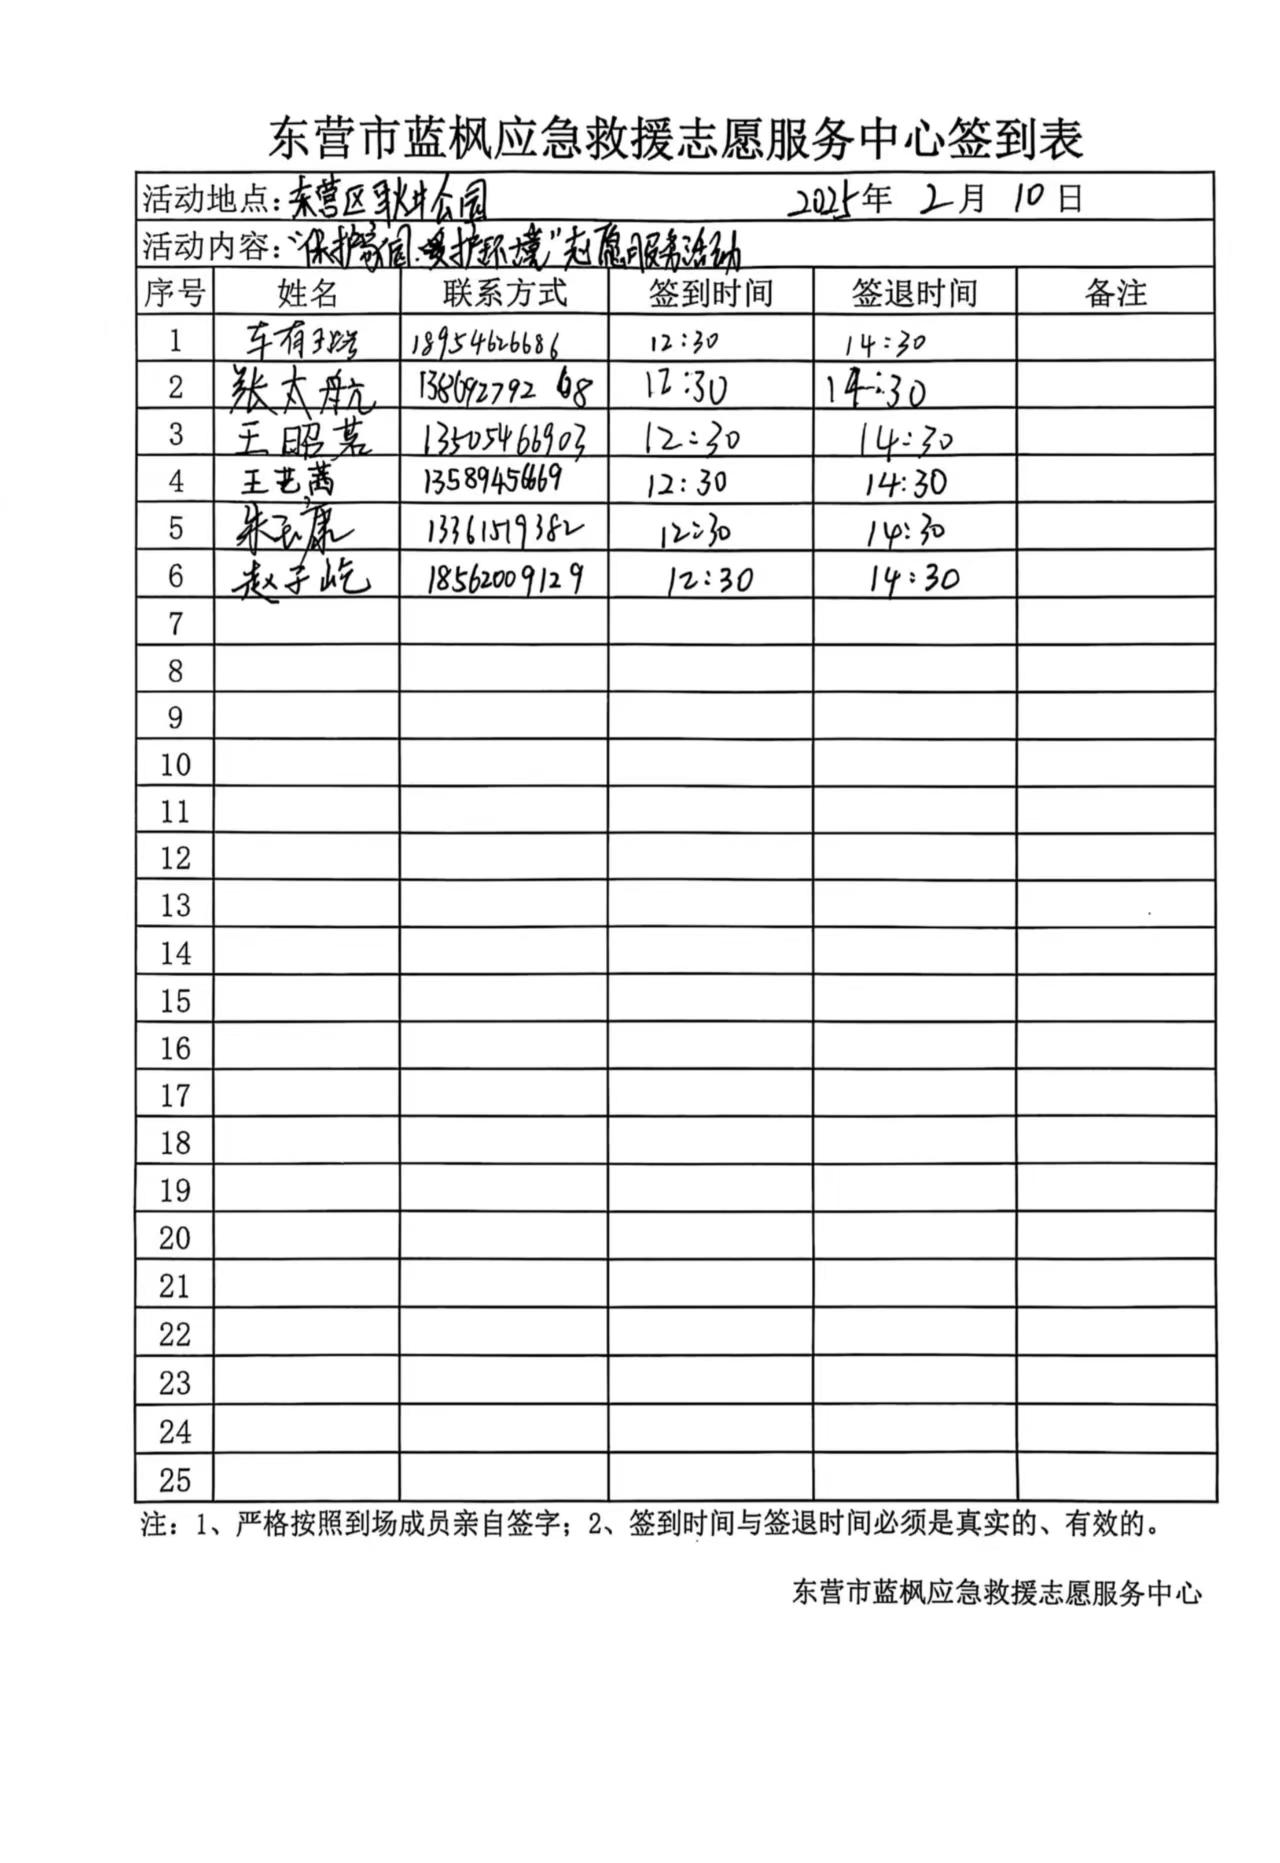 东营市蓝枫应急救援志愿服务中心签到表
活动地点：东营区软件公园 2025年 2月 10日
活动内容："保护家园.爱护环境"志愿服务活动
序号 姓名 联系方式 签到时间 签退时间 备注
1 车有 18954626686 12:30 14:30
2 张太航 13869279268 12:30 14:30
3 王昭茗 13505466903 12:30 14:30
4 王艺茜 13589456669 12:30 14:30
5 朱玉康 13361519382 12:30 14:30
6 赵子屹 18562009129 12:30 14:30
7
8
9
10
11
12
13
14
15
16
17
18
19
20
21
22
23
24
25
注：1、严格按照到场成员亲自签字；2、签到时间与签退时间必须是真实的、有效的。
东营市蓝枫应急救援志愿服务中心